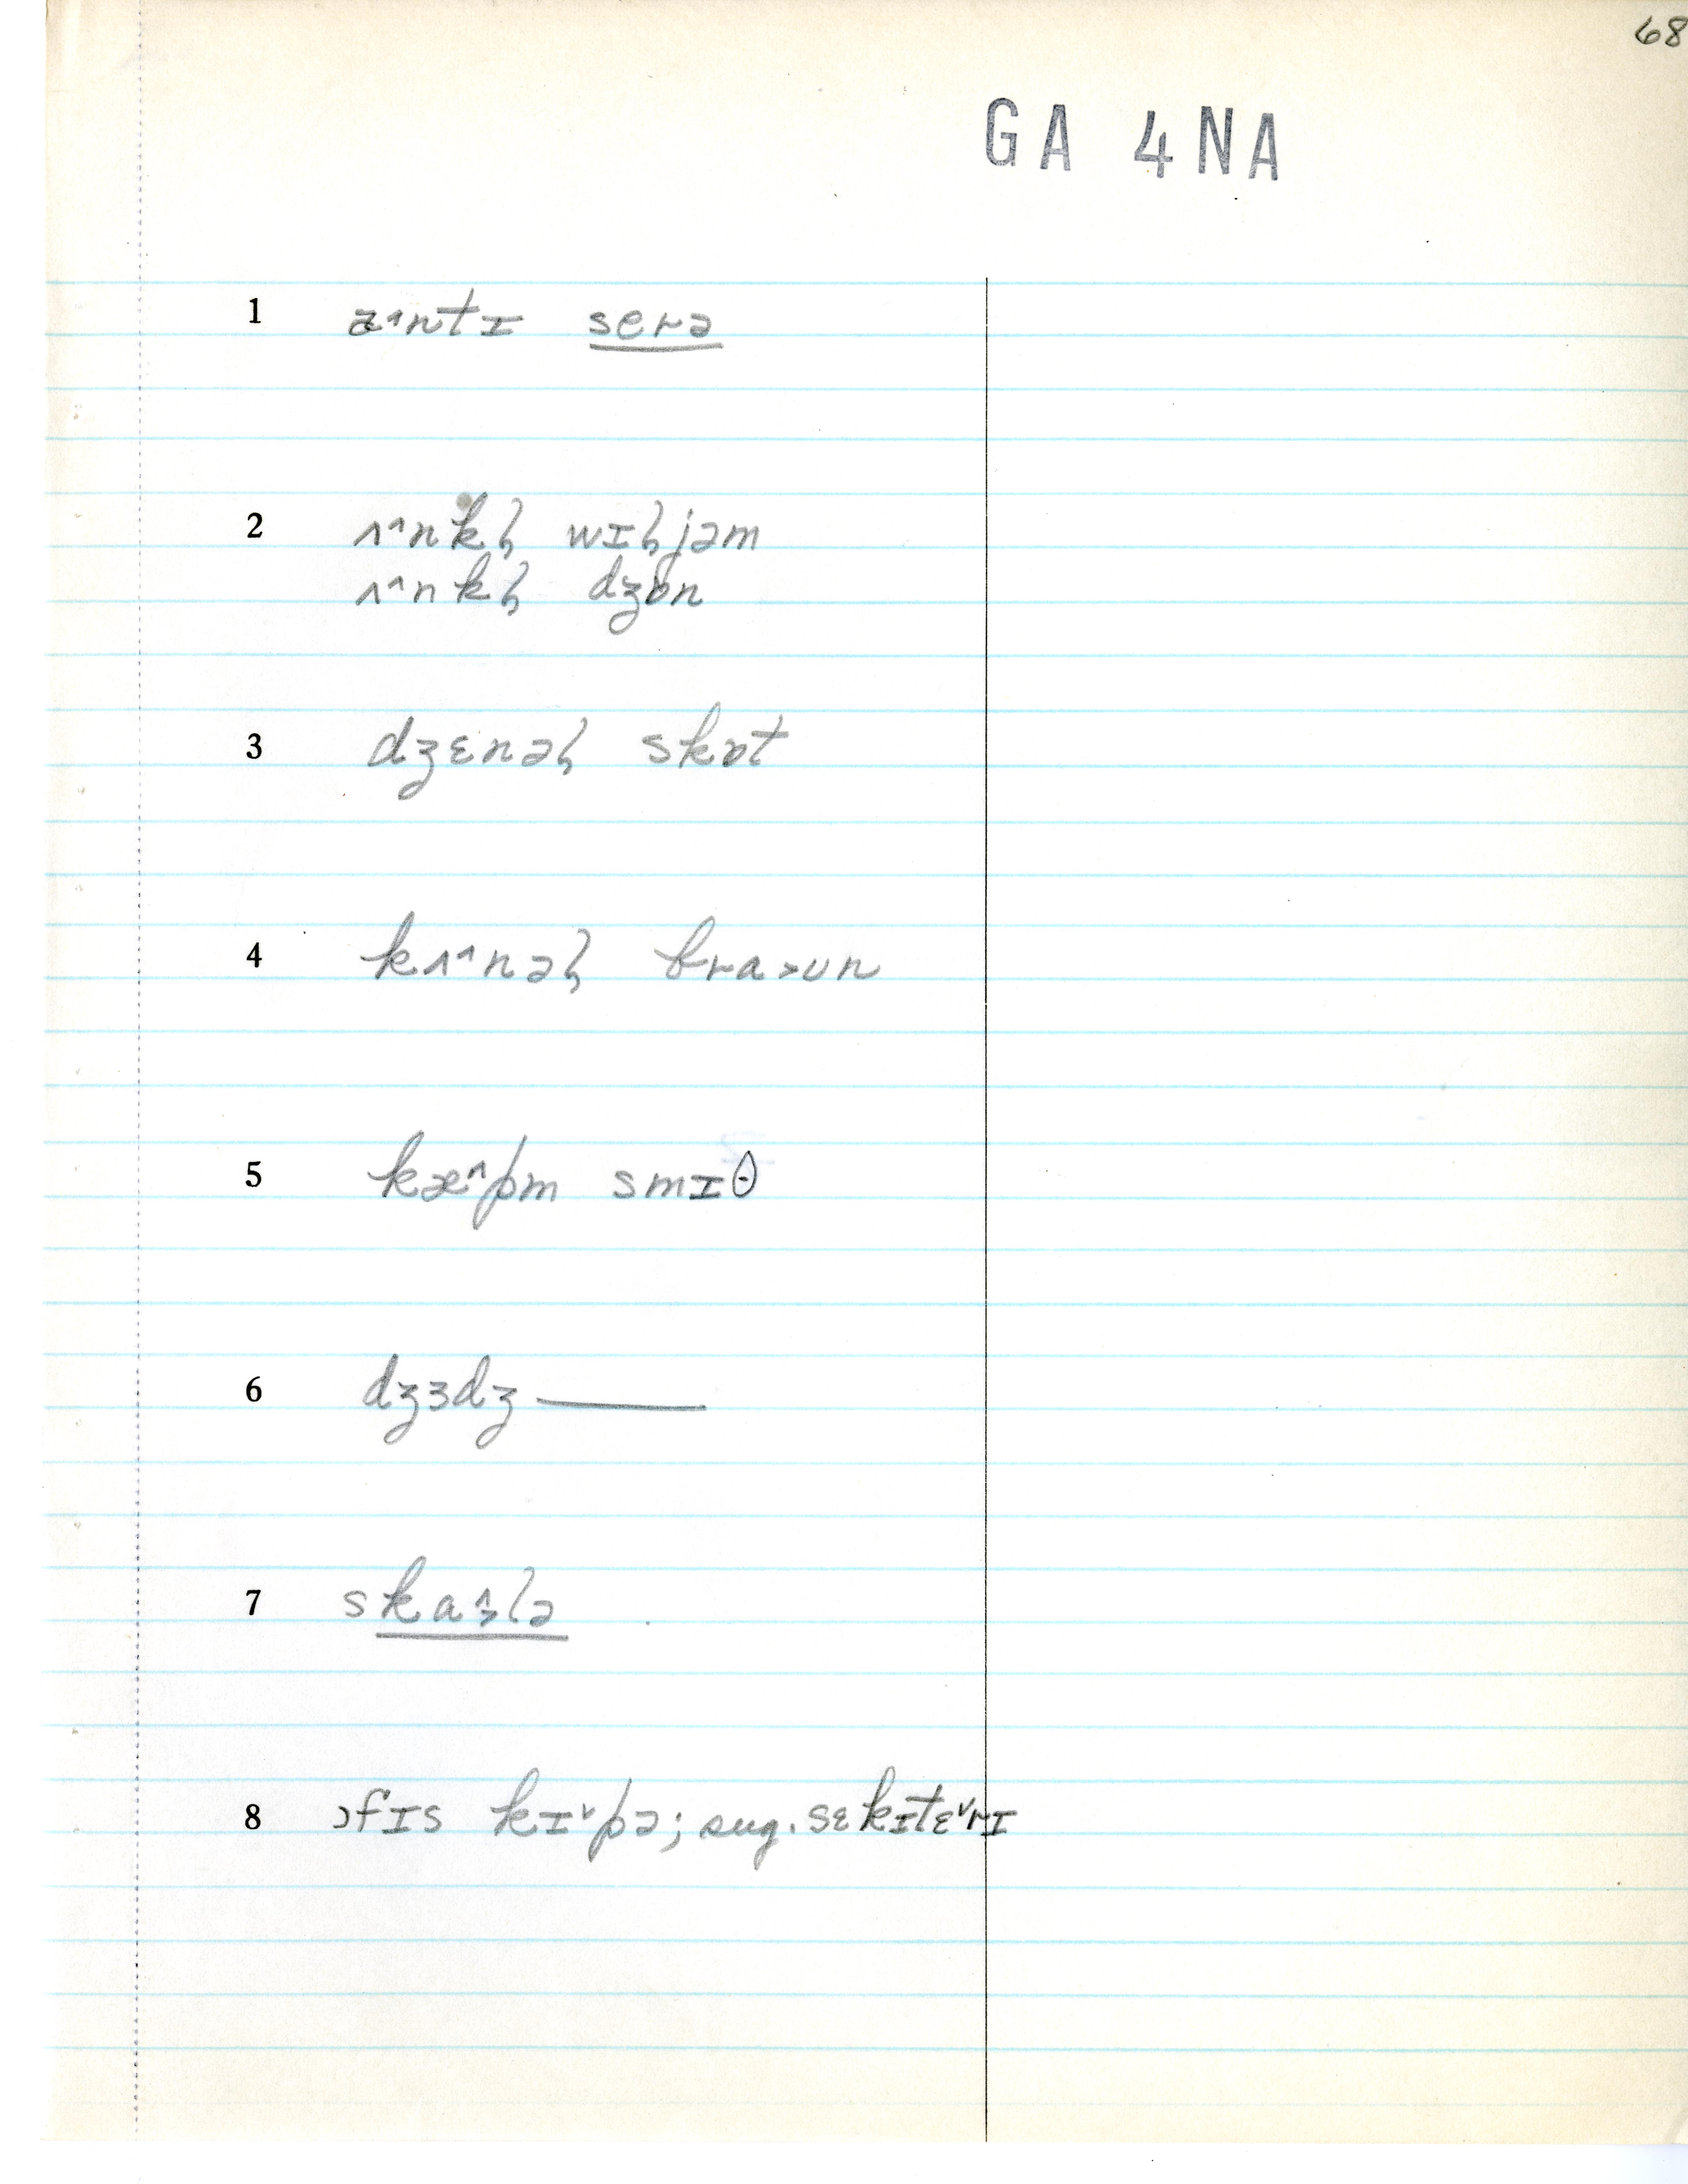 68
GA 4NA
1 a˄ntɪ serə
2 ʌ˄nkl̡ wɪl̡jəm
ʌ˄nkl̡ dʒɒn
3 dʒɛnəl̡ skɒt
4 kʌ˄nəl̡ bra>ʊn
5 kæ˄pm smɪθ
6 dʒɜdʒ ———
7 ska
8 ɔfɪs kɪ˅pə; sug. sɛkɪtɛ˅rɪ